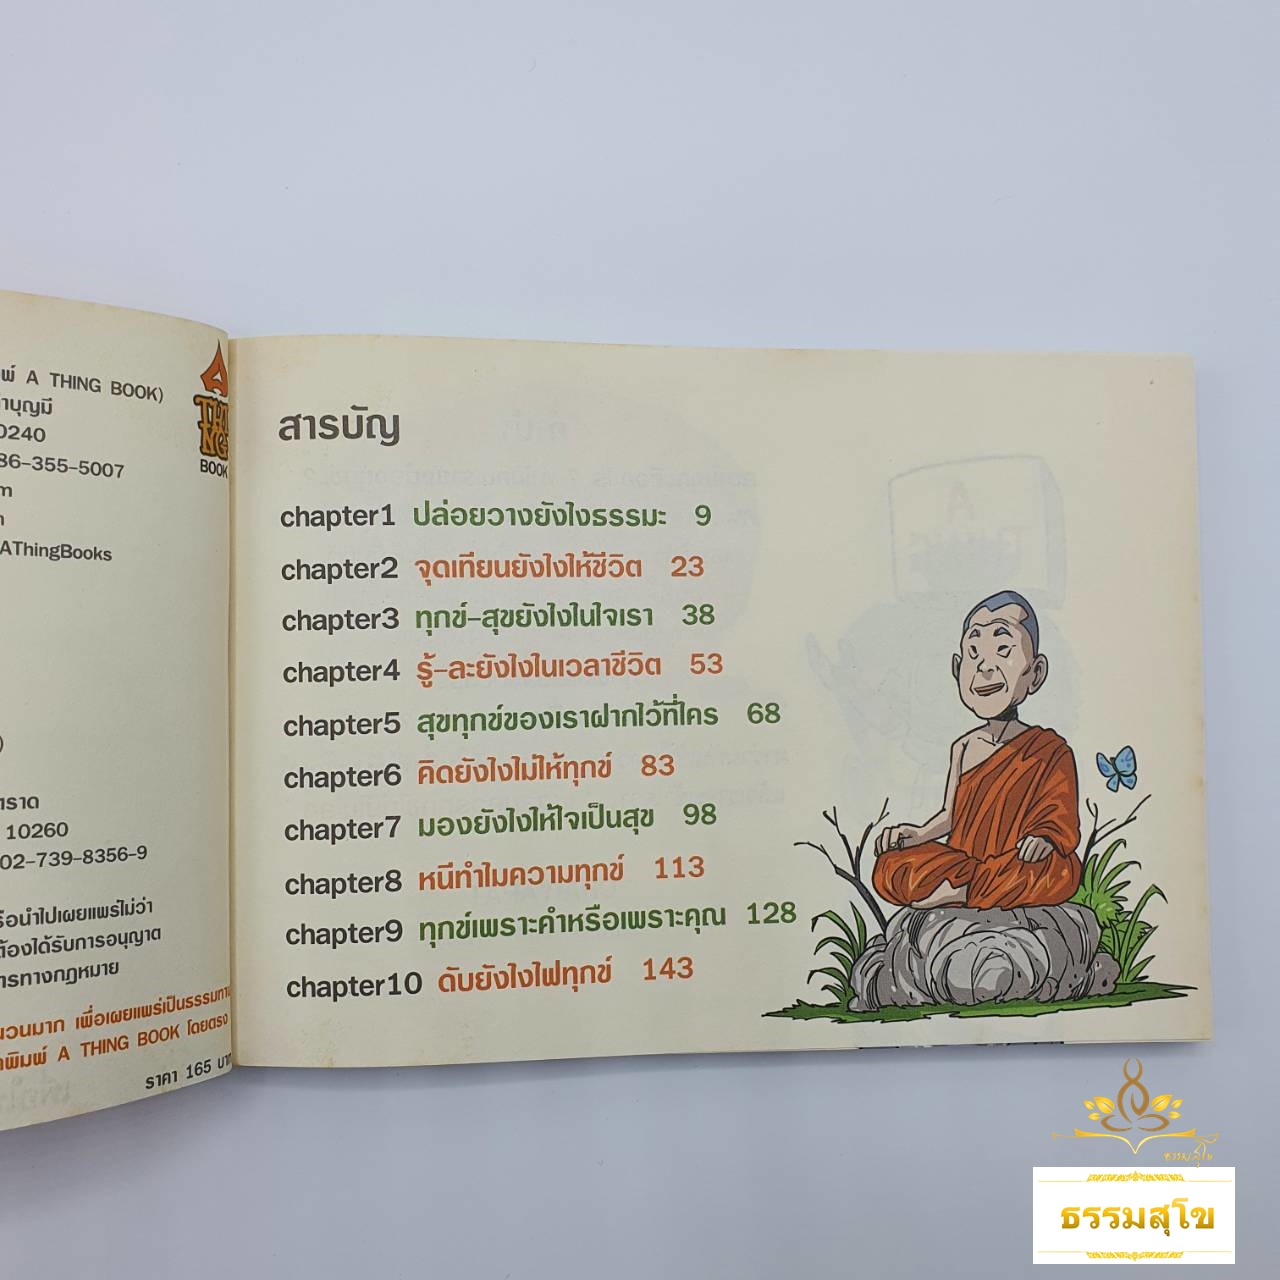 พ์ A THING BOOK)
าบุญมี
0240
86-355-5007
m
AThingBooks
)
ตราด
10260
02-739-8356-9
รือนำไปเผยแพร่ไม่ว่า
ต้องได้รับการอนุญาต
ารทางกฎหมาย
นวนมาก เพื่อเผยแพร่เป็นธรรมทาน
กพิมพ์ A THING BOOK โดยตรง
ราคา 165 บาท
A
THI
NG
BOOK
สารบัญ
chapter1 ปล่อยวางยังไงธรรมะ 9
chapter2 จุดเทียนยังไงให้ชีวิต 23
chapter3 ทุกข์-สุขยังไงในใจเรา 38
chapter4 รู้-ละยังไงในเวลาชีวิต 53
chapter5 สุขทุกข์ของเราฝากไว้ที่ใคร 68
chapter6 คิดยังไงไม่ให้ทุกข์ 83
chapter7 มองยังไงให้ใจเป็นสุข 98
chapter8 หนีทำไมความทุกข์ 113
chapter9 ทุกข์เพราะคำหรือเพราะคุณ 128
chapter10 ดับยังไงไฟทุกข์ 143
ธรรมสุโข
ธรรมสุโข